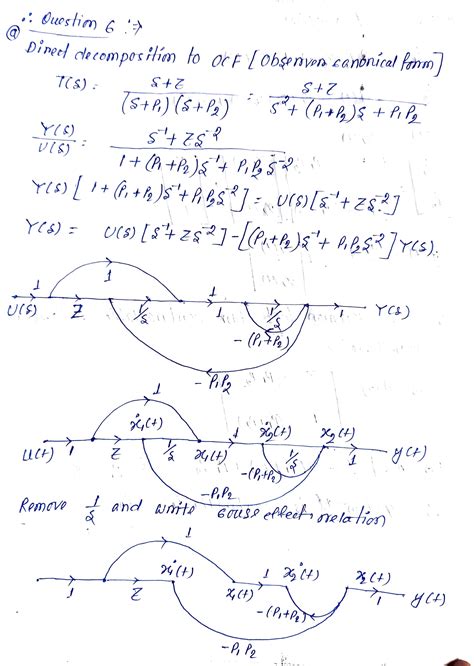 ∴ Question 6 :→
ⓐ
Direct decomposition to OCF [Observer canonical form]
T(s) = s+z / (s+P₁)(s+P₂) = s+z / s²+(P₁+P₂)s+P₁P₂
Y(s)/U(s) = s⁻¹+zs⁻² / 1+(P₁+P₂)s⁻¹+P₁P₂s⁻²
Y(s)[1+(P₁+P₂)s⁻¹+P₁P₂s⁻²] = U(s)[s⁻¹+zs⁻²]
Y(s) = U(s)[s⁻¹+zs⁻²]-[(P₁+P₂)s⁻¹+P₁P₂s⁻²]Y(s).
1
1
U(s) z 1/s 1 1/s 1 Y(s)
-(P₁+P₂)
-P₁P₂
1
ẋ₁(t) ẋ₂(t) x₂(t)
U(t) 1 z 1/s x₁(t) 1 1/s 1 y(t)
-(P₁+P₂)
-P₁P₂
Remove 1/s and write cause effect relation
1
ẋ₁(t) 1 ẋ₂(t) x₂(t)
1 z x₁(t) 1 y(t)
-(P₁+P₂)
-P₁P₂